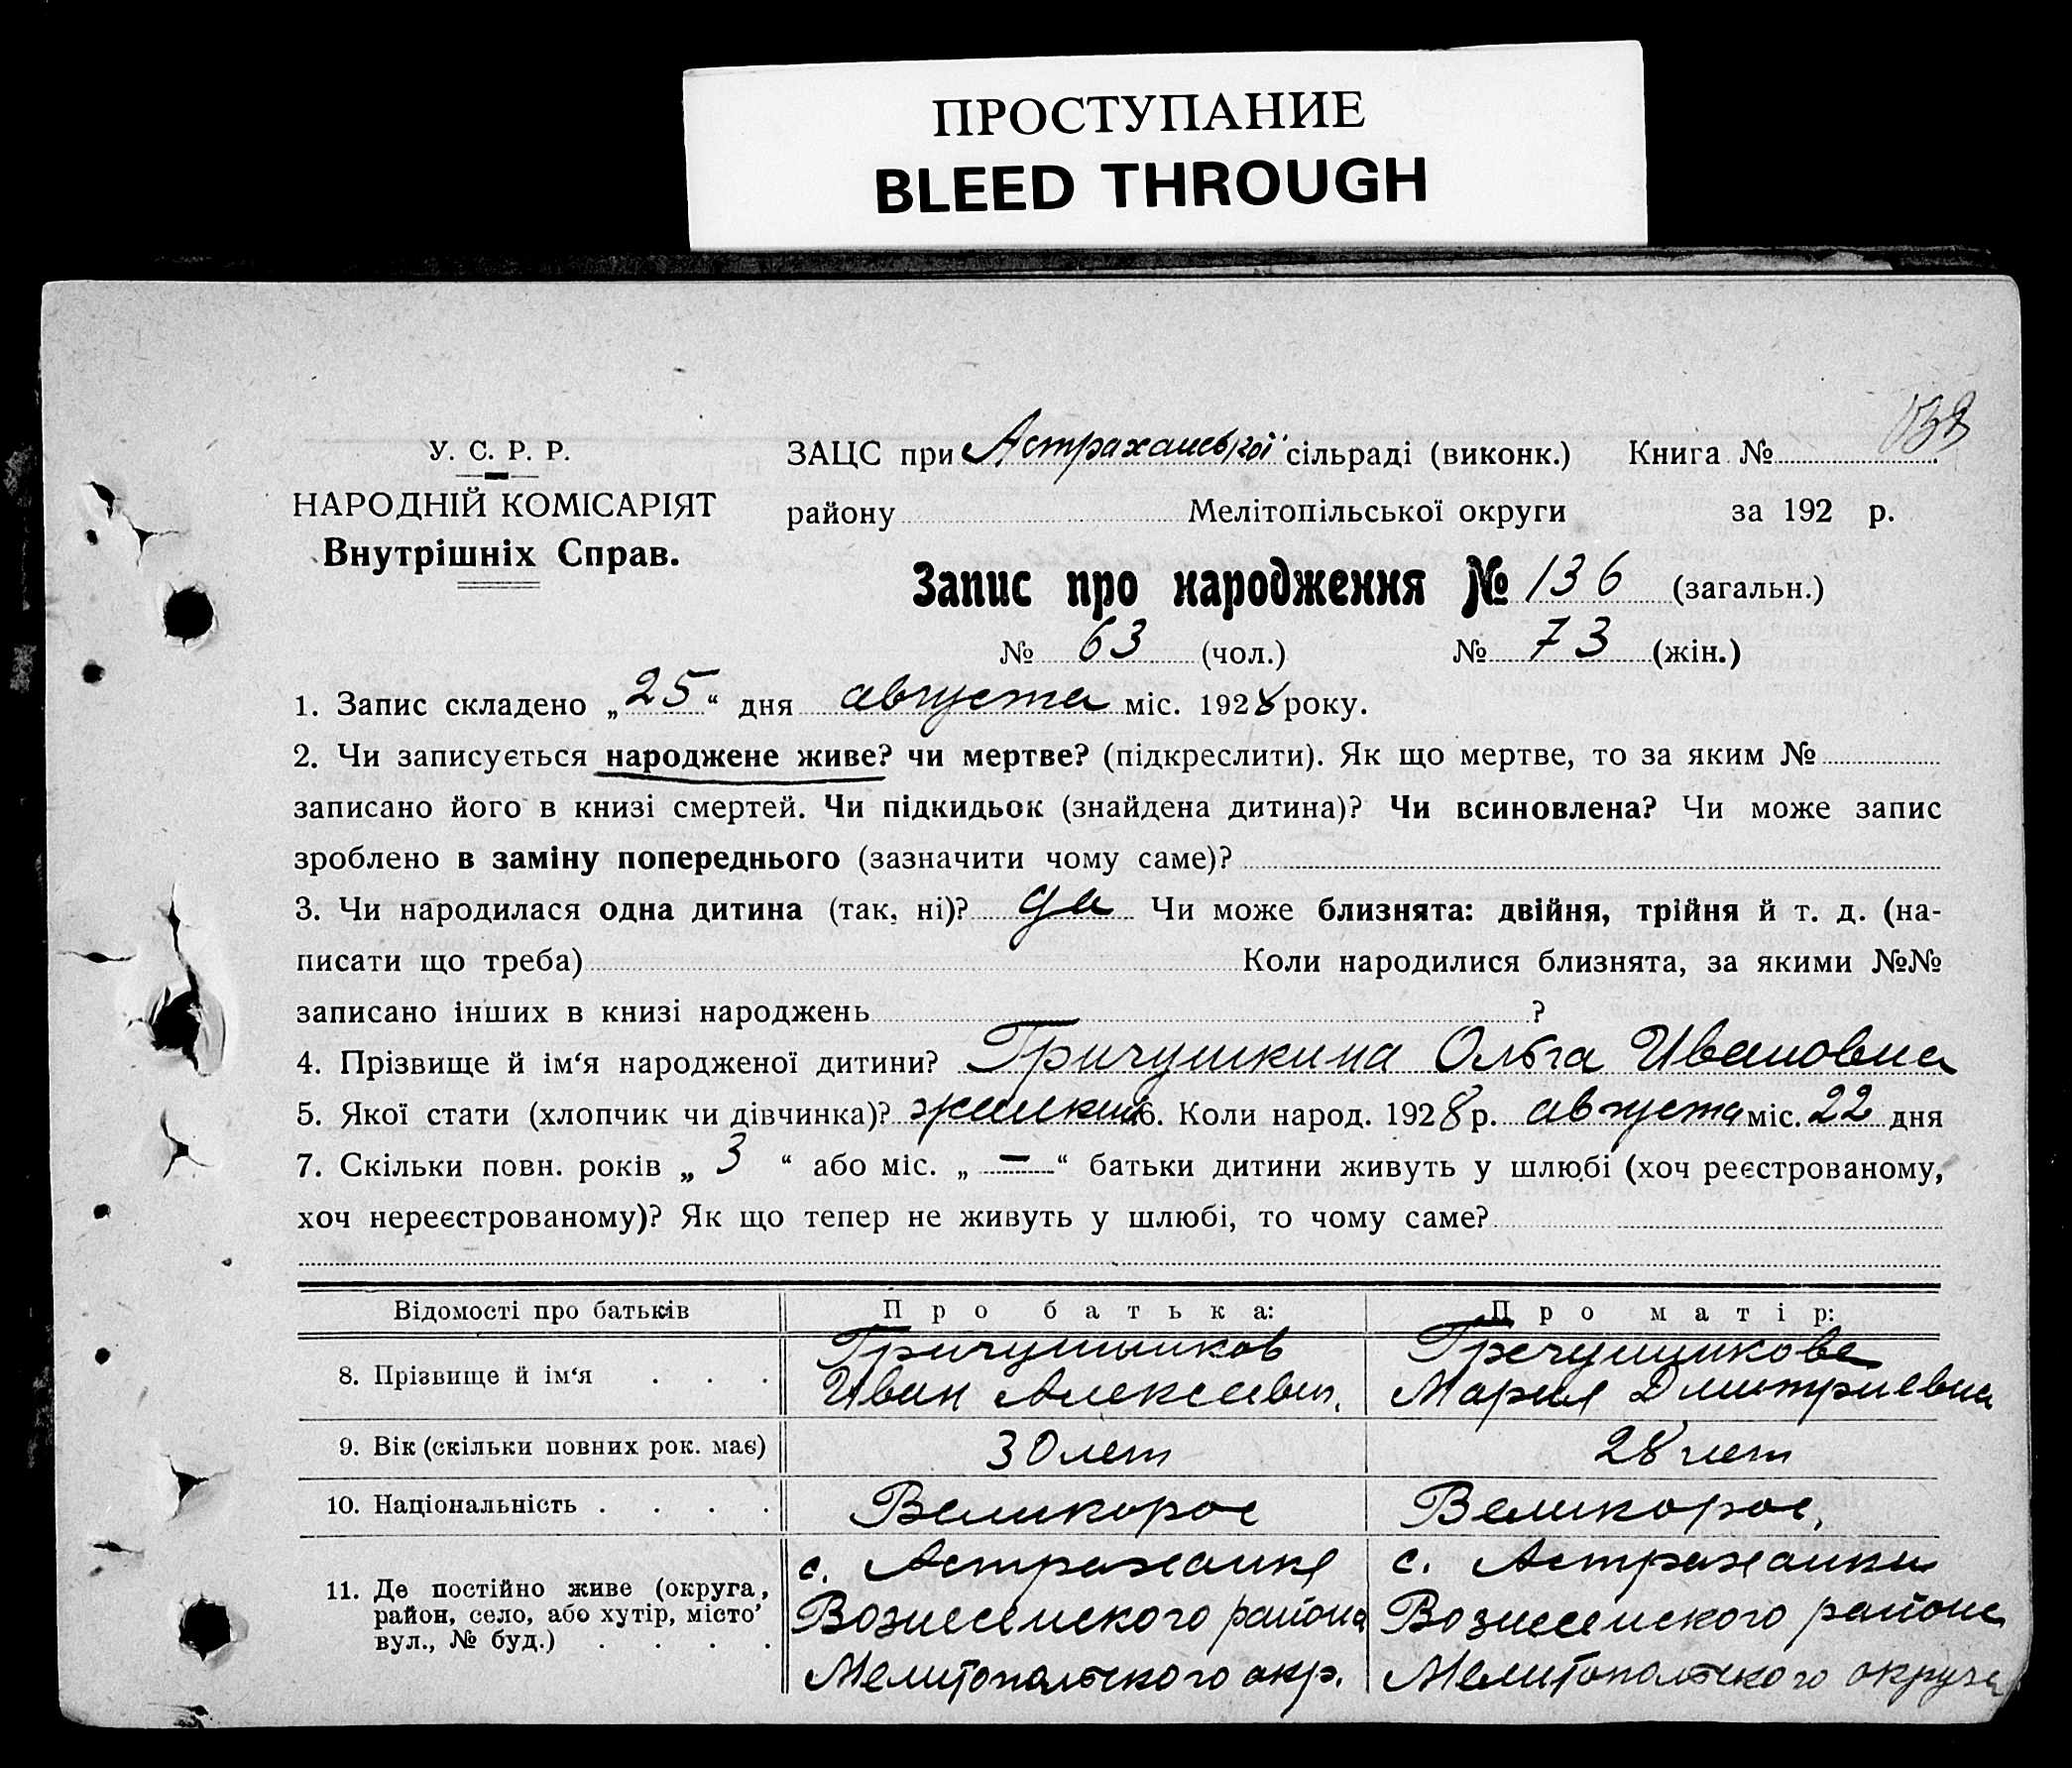 ПРОСТУПАНИЕ
BLEED THROUGH
138
У. С. Р. Р.
НАРОДНІЙ КОМІСАРІЯТ
Внутрішніх Справ.
ЗАЦС при Астраханської сільраді (виконк.) Книга №
району Мелітопільської округи за 192 р.
Запис про народження № 136 (загальн.)
№ 63 (чол.) № 73 (жін.)
1. Запис складено „25“ дня августа міс. 1928 року.
2. Чи записується народжене живе? чи мертве? (підкреслити). Як що мертве, то за яким №
записано його в книзі смертей. Чи підкидьок (знайдена дитина)? Чи всиновлена? Чи може запис
зроблено в заміну попереднього (зазначити чому саме)?
3. Чи народилася одна дитина (так, ні)? да Чи може близнята: двійня, трійня й т. д. (на-
писати що треба) Коли народилися близнята, за якими №№
записано інших в книзі народжень ?
4. Прізвище й ім‘я народженої дитини? Гричушкина Ольга Ивановна
5. Якої стати (хлопчик чи дівчинка)? женский 6. Коли народ. 1928 р. августа міс. 22 дня
7. Скільки повн. років „ 3 “ або міс. „ — “ батьки дитини живуть у шлюбі (хоч реєстрованому,
хоч нереєстрованому)? Як що тепер не живуть у шлюбі, то чому саме?
Відомості про батьків Про батька: Про матір:
8. Прізвище й ім‘я . . . Иван Алексеевич. Мария Дмитриевна
9. Вік (скільки повних рок. має) 30 лет 28 лет
10. Національність . . . . Великорос Великорос,
11. Де постійно живе (округа, район, село, або хутір, місто’ вул., № буд.) . . . .
с. Астраханка
Вознесенского района
Мелитопольского окр.
с. Астраханки
Вознесенского района
Мелитопольского округа